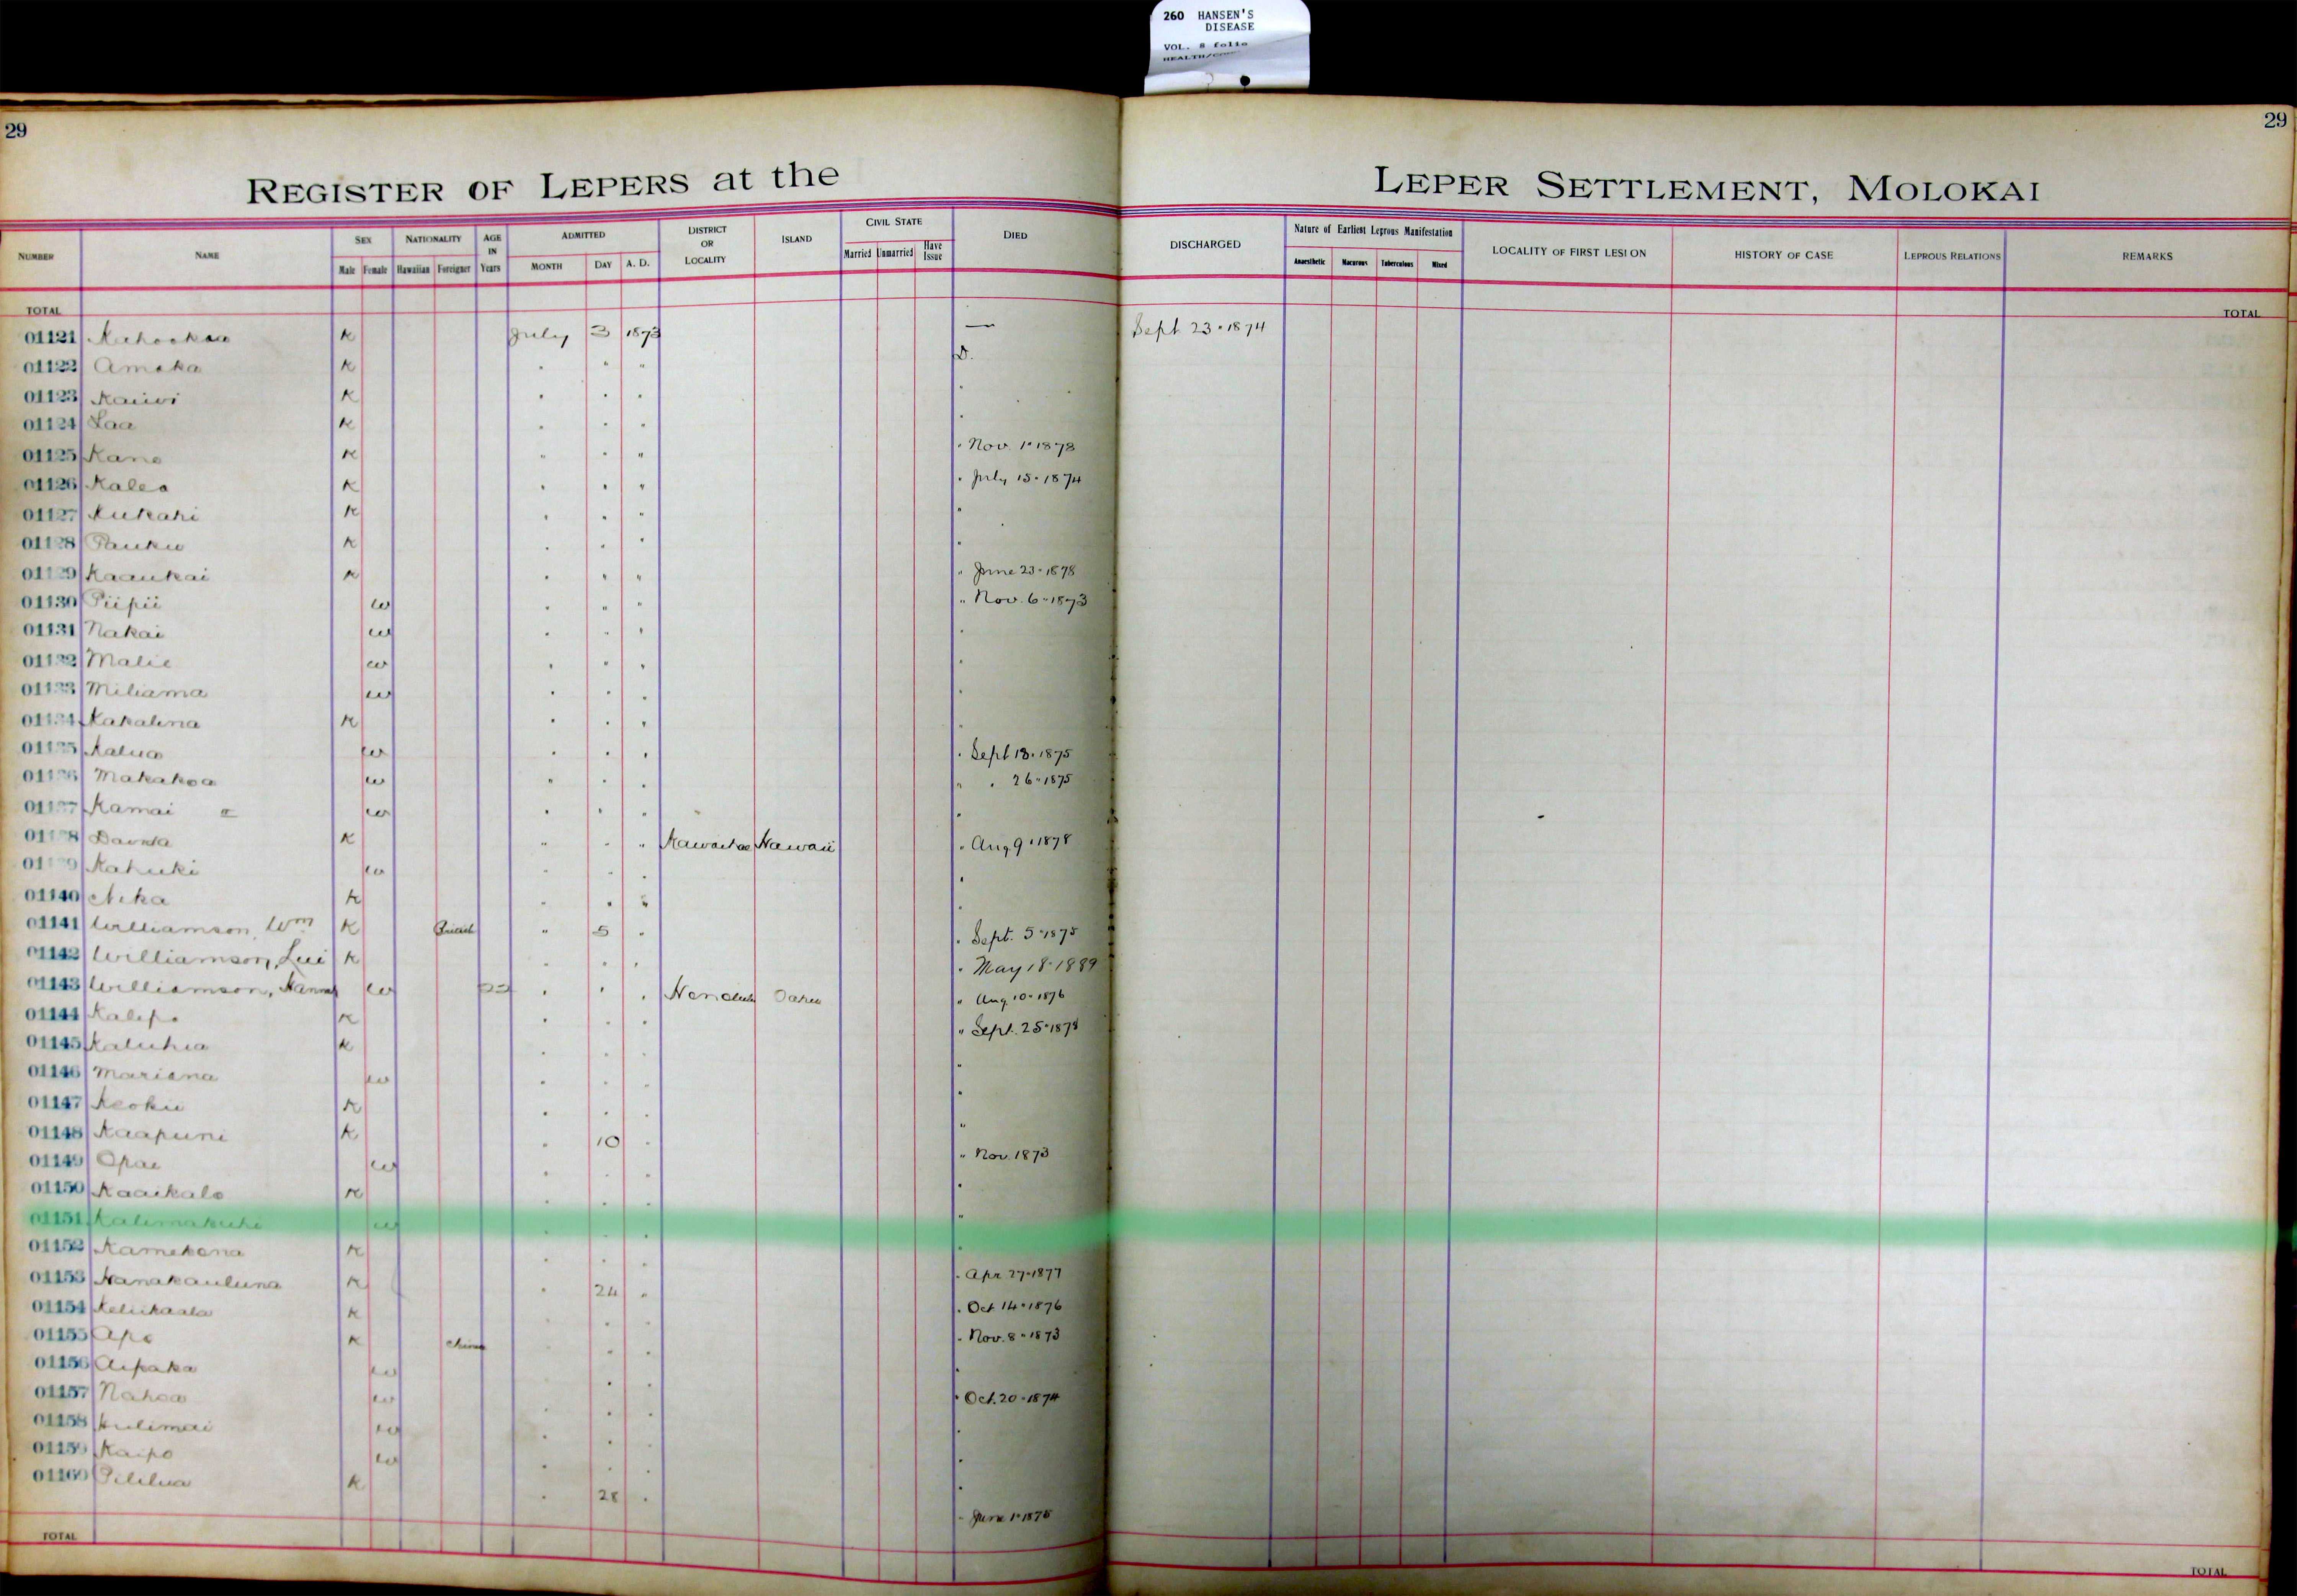 260 HANSEN'S
DISEASE
VOL. 8 folio
29
29
REGISTER OF LEPERS at the LEPER SETTLEMENT, MOLOKAI
NUMBER NAME SEX NATIONALITY AGE IN Years ADMITTED DISTRICT OR LOCALITY ISLAND CIVIL STATE DIED DISCHARGED Nature of Earliest Leprous Manifestation LOCALITY OF FIRST LESION HISTORY OF CASE LEPROUS RELATIONS REMARKS
Male Female Hawaiian Foreigner MONTH DAY A. D. Married Unmarried Have Issue Anaesthetic Macurous Tuberculous Mixed
TOTAL TOTAL
01121 K July 3 1873 — Sept 23 • 1874
01122 Amaka K " " " D.
01123 Kaiwi K " " " "
01124 Laa K " " " "
01125 Kane K " " " " Nov. 1 • 1878
01126 Kalea K " " " " July 15 • 1874
01127 Kukahi K " " " "
01128 Pauku K " " " "
01129 Kaaukai K " " " " June 23 • 1878
01130 Piipii w " " " " Nov. 6 • 1873
01131 Nakai w " " " "
01132 Malie w " " " "
01133 Miliama w " " " "
01134 Kakalina K " " " "
01135 Kalua w " " " " Sept 18 • 1875
01136 Makakoa w " " " " " 26 • 1875
01137 Kamai w " " " "
01138 K " " " Kawaihae Hawaii " Aug 9 • 1878
01139 Kahuki w " " " "
01140 Nika K " " " "
01141 Williamson, Wm K British " 5 " " Sept. 5 • 1875
01142 Williamson, Lui K " " " " May 18 • 1889
01143 Williamson, w " " " Honolulu Oahu " Aug. 10 • 1876
01144 Kalepo K " " " " Sept. 25 • 1878
01145 Kaluhia K " " " "
01146 Mariana w " " " "
01147 Keoku K " " " "
01148 Kaapuni K " 10 " "
01149 Opae w " " " " Nov. 1873
01150 Kaaikalo K " " " "
01151 Kalimakuhi w " " " "
01152 Kamekona K " " " "
01153 Nanakauluna K " 24 " " Apr 27 • 1877
01154 Keliikaala K " " " " Oct 14 • 1876
01155 Apo K China " " " " Nov. 8 • 1873
01156 Aipaka w " " " "
01157 Nahoa w " " " " Oct. 20 • 1874
01158 Hulimai w " " " "
01159 Kaipo w " " " "
01160 Pililua K " 28 " " June 1 • 1875
TOTAL TOTAL